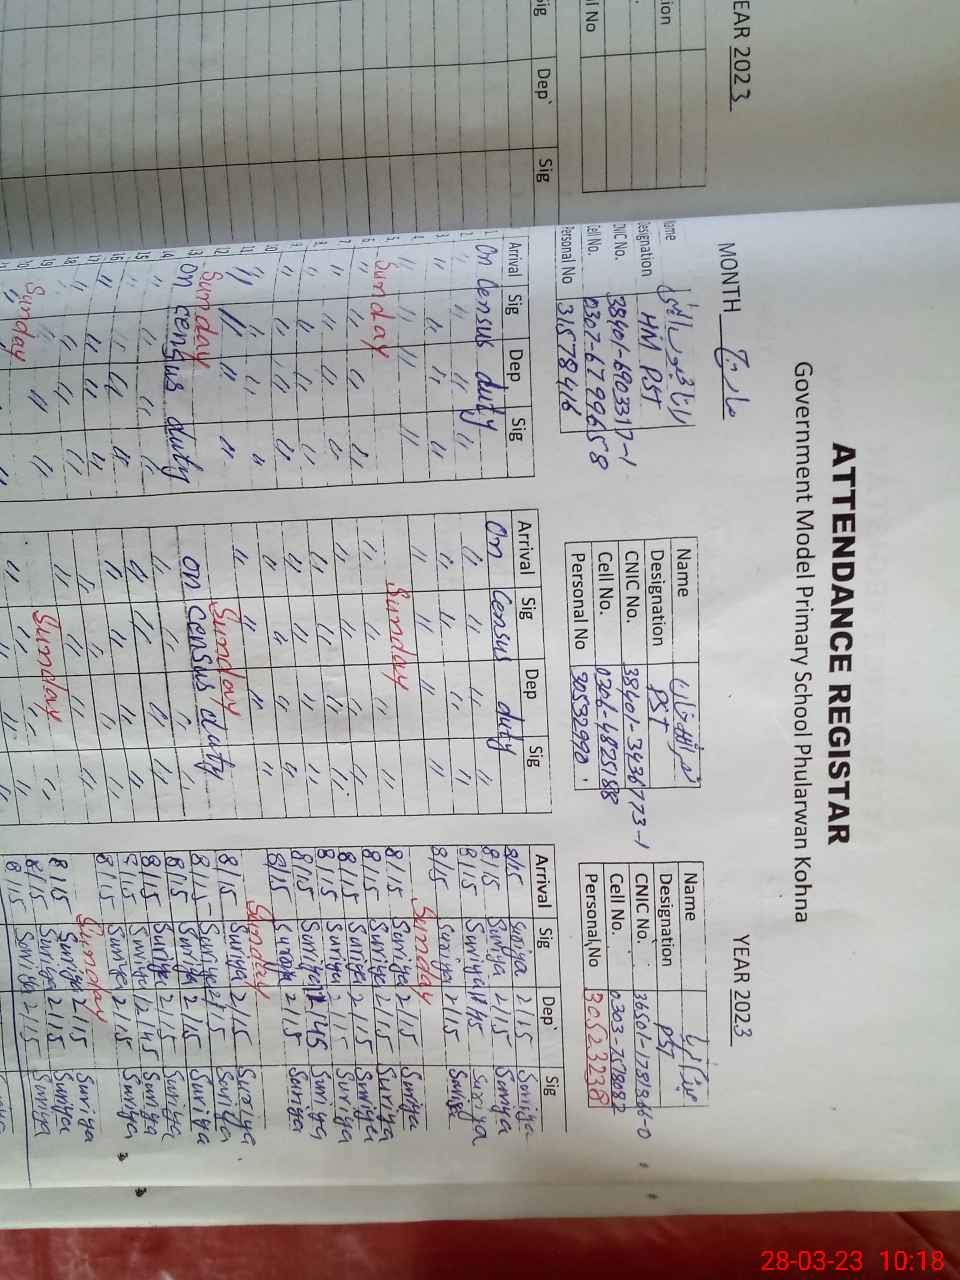 ATTENDANCE REGISTAR
Government Model Primary School Phularwan Kohna
MONTH مارچ
YEAR 2023
EAR 2023
ion
ll No
ig Dep` Sig
Name
Designation HM PST
CNIC No. 38401-6903317-1
Cell No. 0307-6799658
Personal No 31578416
Arrival Sig Dep Sig
On Census duty
Sunday
Sunday
On census duty
Sunday
Name
Designation PST
CNIC No. 38401-3436773-1
Cell No. 0306-4825188
Personal No 30532990
Arrival Sig Dep Sig
On Census duty
Sunday
Sunday
on census duty
Sunday
Name
Designation PST
CNIC No. 36501-1781866-0
Cell No. 0303-7578082
Personal No 30523238
Arrival Sig Dep` Sig
8/15 Suriya 2/15 Suriya
8/15 Suriya 2/15 Suriya
8/15 Suriya 1/45 Suriya
8/15 Suriya 2/15 Suriya
Sunday
8/15 Suriya 2/15 Suriya
8/15 Suriya 2/15 Suriya
8/15 Suriya 2/15 Suriya
8/15 Suriya 2/15 Suriya
8/15 Suriya 12/45 Suriya
8/15 Suriya 2/15 Suriya
Sunday
8/15 Suriya 2/15 Suriya
8/15 Suriya 2/15 Suriya
8/15 Suriya 2/15 Suriya
8/15 Suriya 2/15 Suriya
8/15 Suriya 12/45 Suriya
8/15 Suriya 2/15 Suriya
Sunday
8/15 Suriya 2/15 Suriya
8/15 Suriya 2/15 Suriya
8/15 Suriya 2/15 Suriya
28-03-23 10:18